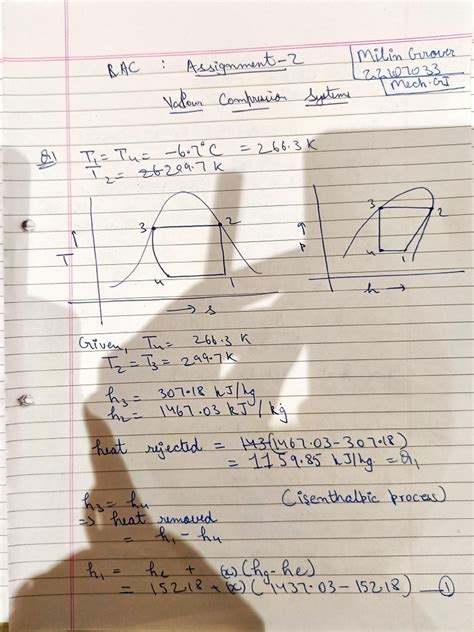 RAC : Assignment-2
Milin Grover
22107033
Mech. G1
Vapour Compression Systems
Q1 T₁ = T₄ = -6.7°C = 266.3 K
T₂ = 299.7 K
3 2
T
4 1
→ s
3 2
P
4 1
h →
Given, T₄ = 266.3 K
T₂ = T₃ = 299.7 K
h₃ = 307.18 kJ/kg
h₂ = 1467.03 kJ/kg
heat rejected = (1467.03 - 307.18)
= 1159.85 kJ/kg = Q₁
h₃ = h₄ (isenthalpic process)
⇒ heat removed
= h₁ - h₄
h₁ = hₑ + (x)(hg - hₑ)
= 152.18 + (x)(1437.03 - 152.18) - ①